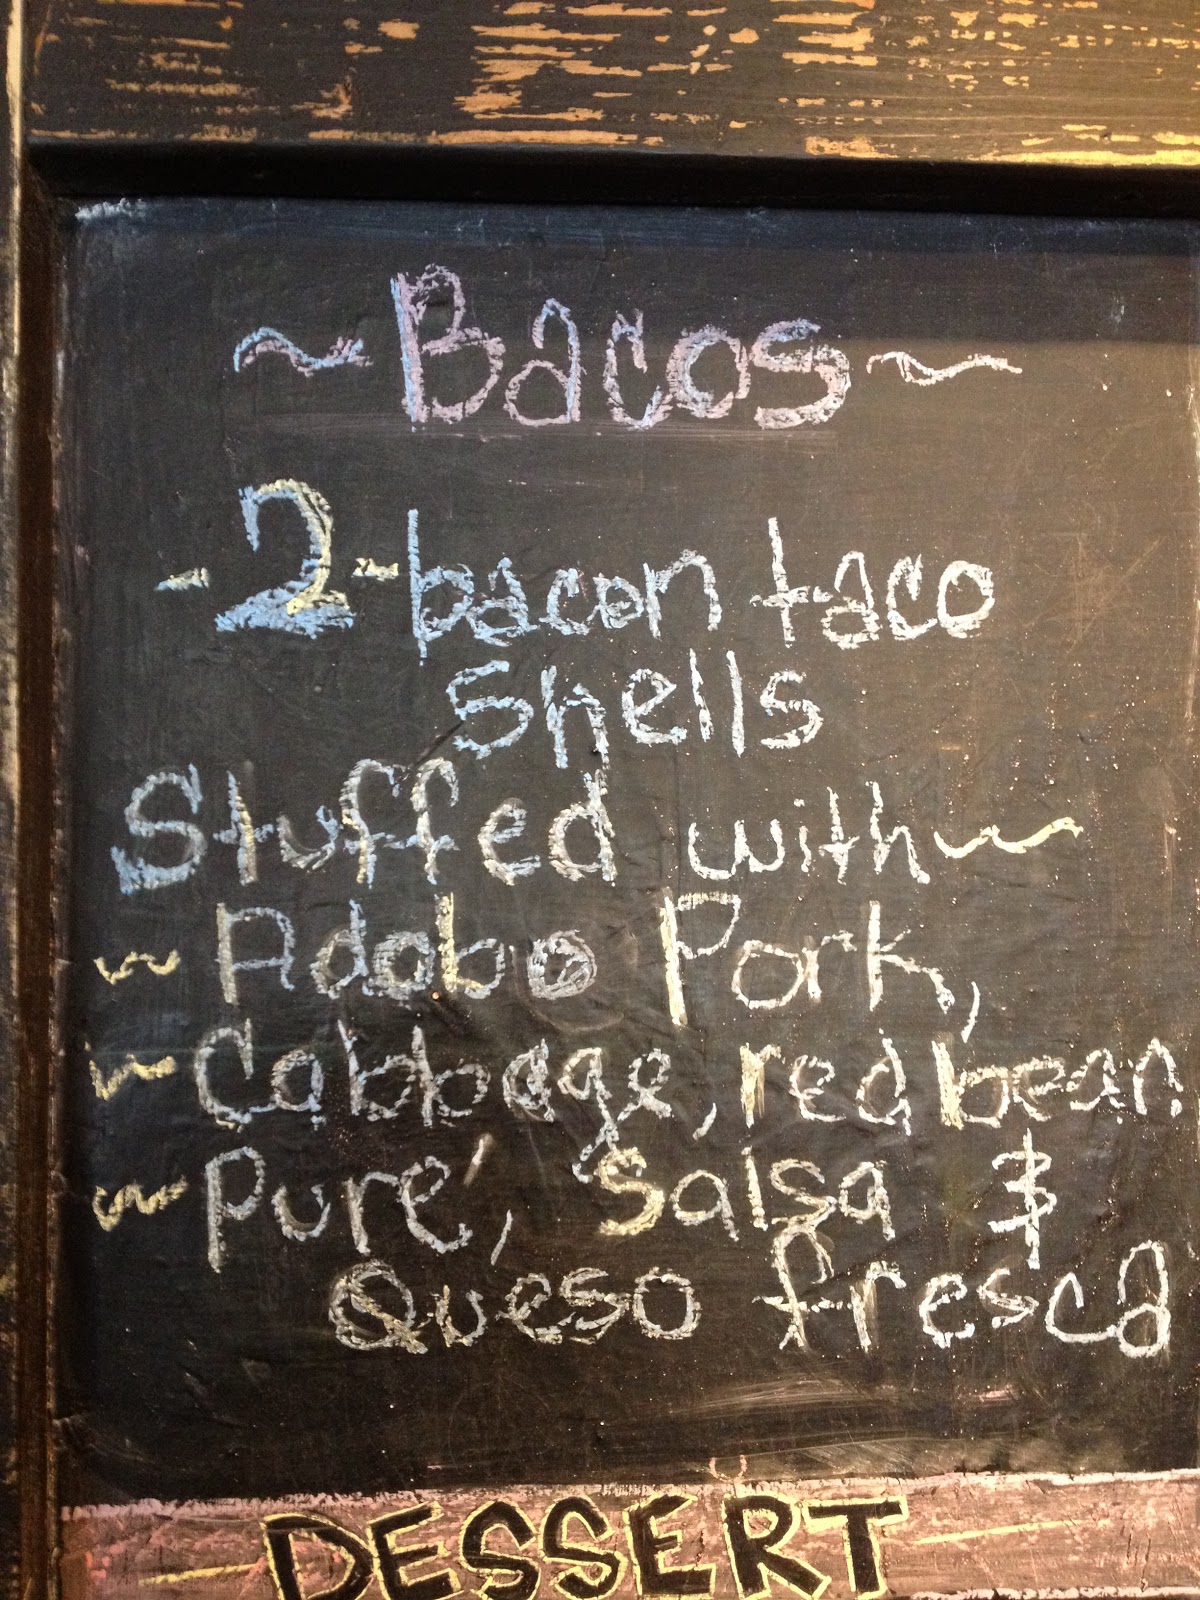 ~Bacos~
-2-bacon taco
Shells
Stuffed with~
~Adobo Pork,
~Cabbage, red bean
~Puré, Salsa &
Queso fresca
DESSERT